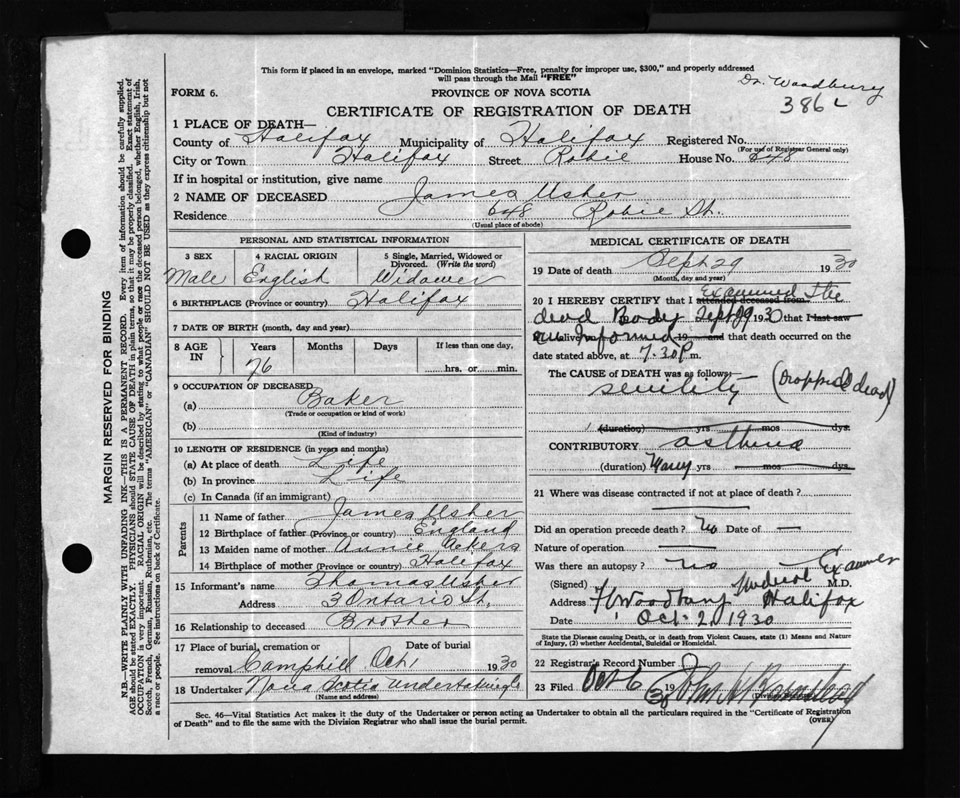 This form if placed in an envelope, marked "Dominion Statistics—Free, penalty for improper use, $300," and properly addressed
will pass through the Mail "FREE"
Dr. Woodbury
386
FORM 6.
PROVINCE OF NOVA SCOTIA
CERTIFICATE OF REGISTRATION OF DEATH
1 PLACE OF DEATH—
County of Halifax Municipality of Halifax Registered No.
(For use of Registrar General only)
City or Town Halifax Street Robie House No. 648
If in hospital or institution, give name
2 NAME OF DECEASED James Usher
Residence 648 Robie St.
(Usual place of abode)
PERSONAL AND STATISTICAL INFORMATION
3 SEX 4 RACIAL ORIGIN 5 Single, Married, Widowed or
Divorced. (Write the word)
Male English Widower
6 BIRTHPLACE (Province or country) Halifax
7 DATE OF BIRTH (month, day and year)
8 AGE IN Years Months Days If less than one day,
76 hrs. or min.
9 OCCUPATION OF DECEASED
(a) Baker
(Trade or occupation or kind of work)
(b)
(Kind of industry)
10 LENGTH OF RESIDENCE (in years and months)
(a) At place of death Life
(b) In province Life
(c) In Canada (if an immigrant)
Parents
11 Name of father James Usher
12 Birthplace of father (Province or country) England
13 Maiden name of mother Annie Akers
14 Birthplace of mother (Province or country) Halifax
15 Informant's name Thomas Usher
Address 3 Ontario St.
16 Relationship to deceased Brother
17 Place of burial, cremation or Date of burial
removal Camphill Oct 1 1930
18 Undertaker Nova Scotia Undertaking
(Name and address)
MEDICAL CERTIFICATE OF DEATH
19 Date of death Sept 29 1930
(Month, day and year)
20 I HEREBY CERTIFY that I attended deceased from Examined the
dead Body Sept 29 1930 that I last saw
alive Informed 19 and that death occurred on the
date stated above, at 7.30 P m.
The CAUSE of DEATH was as follows:
senility (Dropped dead)
(duration) yrs mos dys.
CONTRIBUTORY asthma
(duration) Many yrs mos dys.
21 Where was disease contracted if not at place of death?
Did an operation precede death? No Date of —
Nature of operation
Was there an autopsy? no
(Signed) Medical Examiner M.D.
Address Woodbury Halifax
Date Oct. 2, 1930
State the Disease causing Death, or in death from Violent Causes, state (1) Means and Nature
of Injury, (2) whether Accidental, Suicidal or Homicidal.
22 Registrars Record Number
23 Filed Oct 6 19 30 John
Sec. 46—Vital Statistics Act makes it the duty of the Undertaker or person acting as Undertaker to obtain all the particulars required in the "Certificate of Registration
of Death" and to file the same with the Division Registrar who shall issue the burial permit. (OVER)
MARGIN RESERVED FOR BINDING
N.B.—WRITE PLAINLY WITH UNFADING INK—THIS IS A PERMANENT RECORD. Every item of information should be carefully supplied.
AGE should be stated EXACTLY. PHYSICIANS should STATE CAUSE OF DEATH in plain terms, so that it may be properly classified. Exact statement of
OCCUPATION is very important. RACIAL ORIGIN will be described by stating to what people or race the deceased person belonged, whether English, Irish,
Scotch, French, German, Russian, Ruthenian, etc. The terms "AMERICAN" or "CANADIAN" SHOULD NOT BE USED as they express citizenship but not
a race or people. See instructions on back of Certificate.